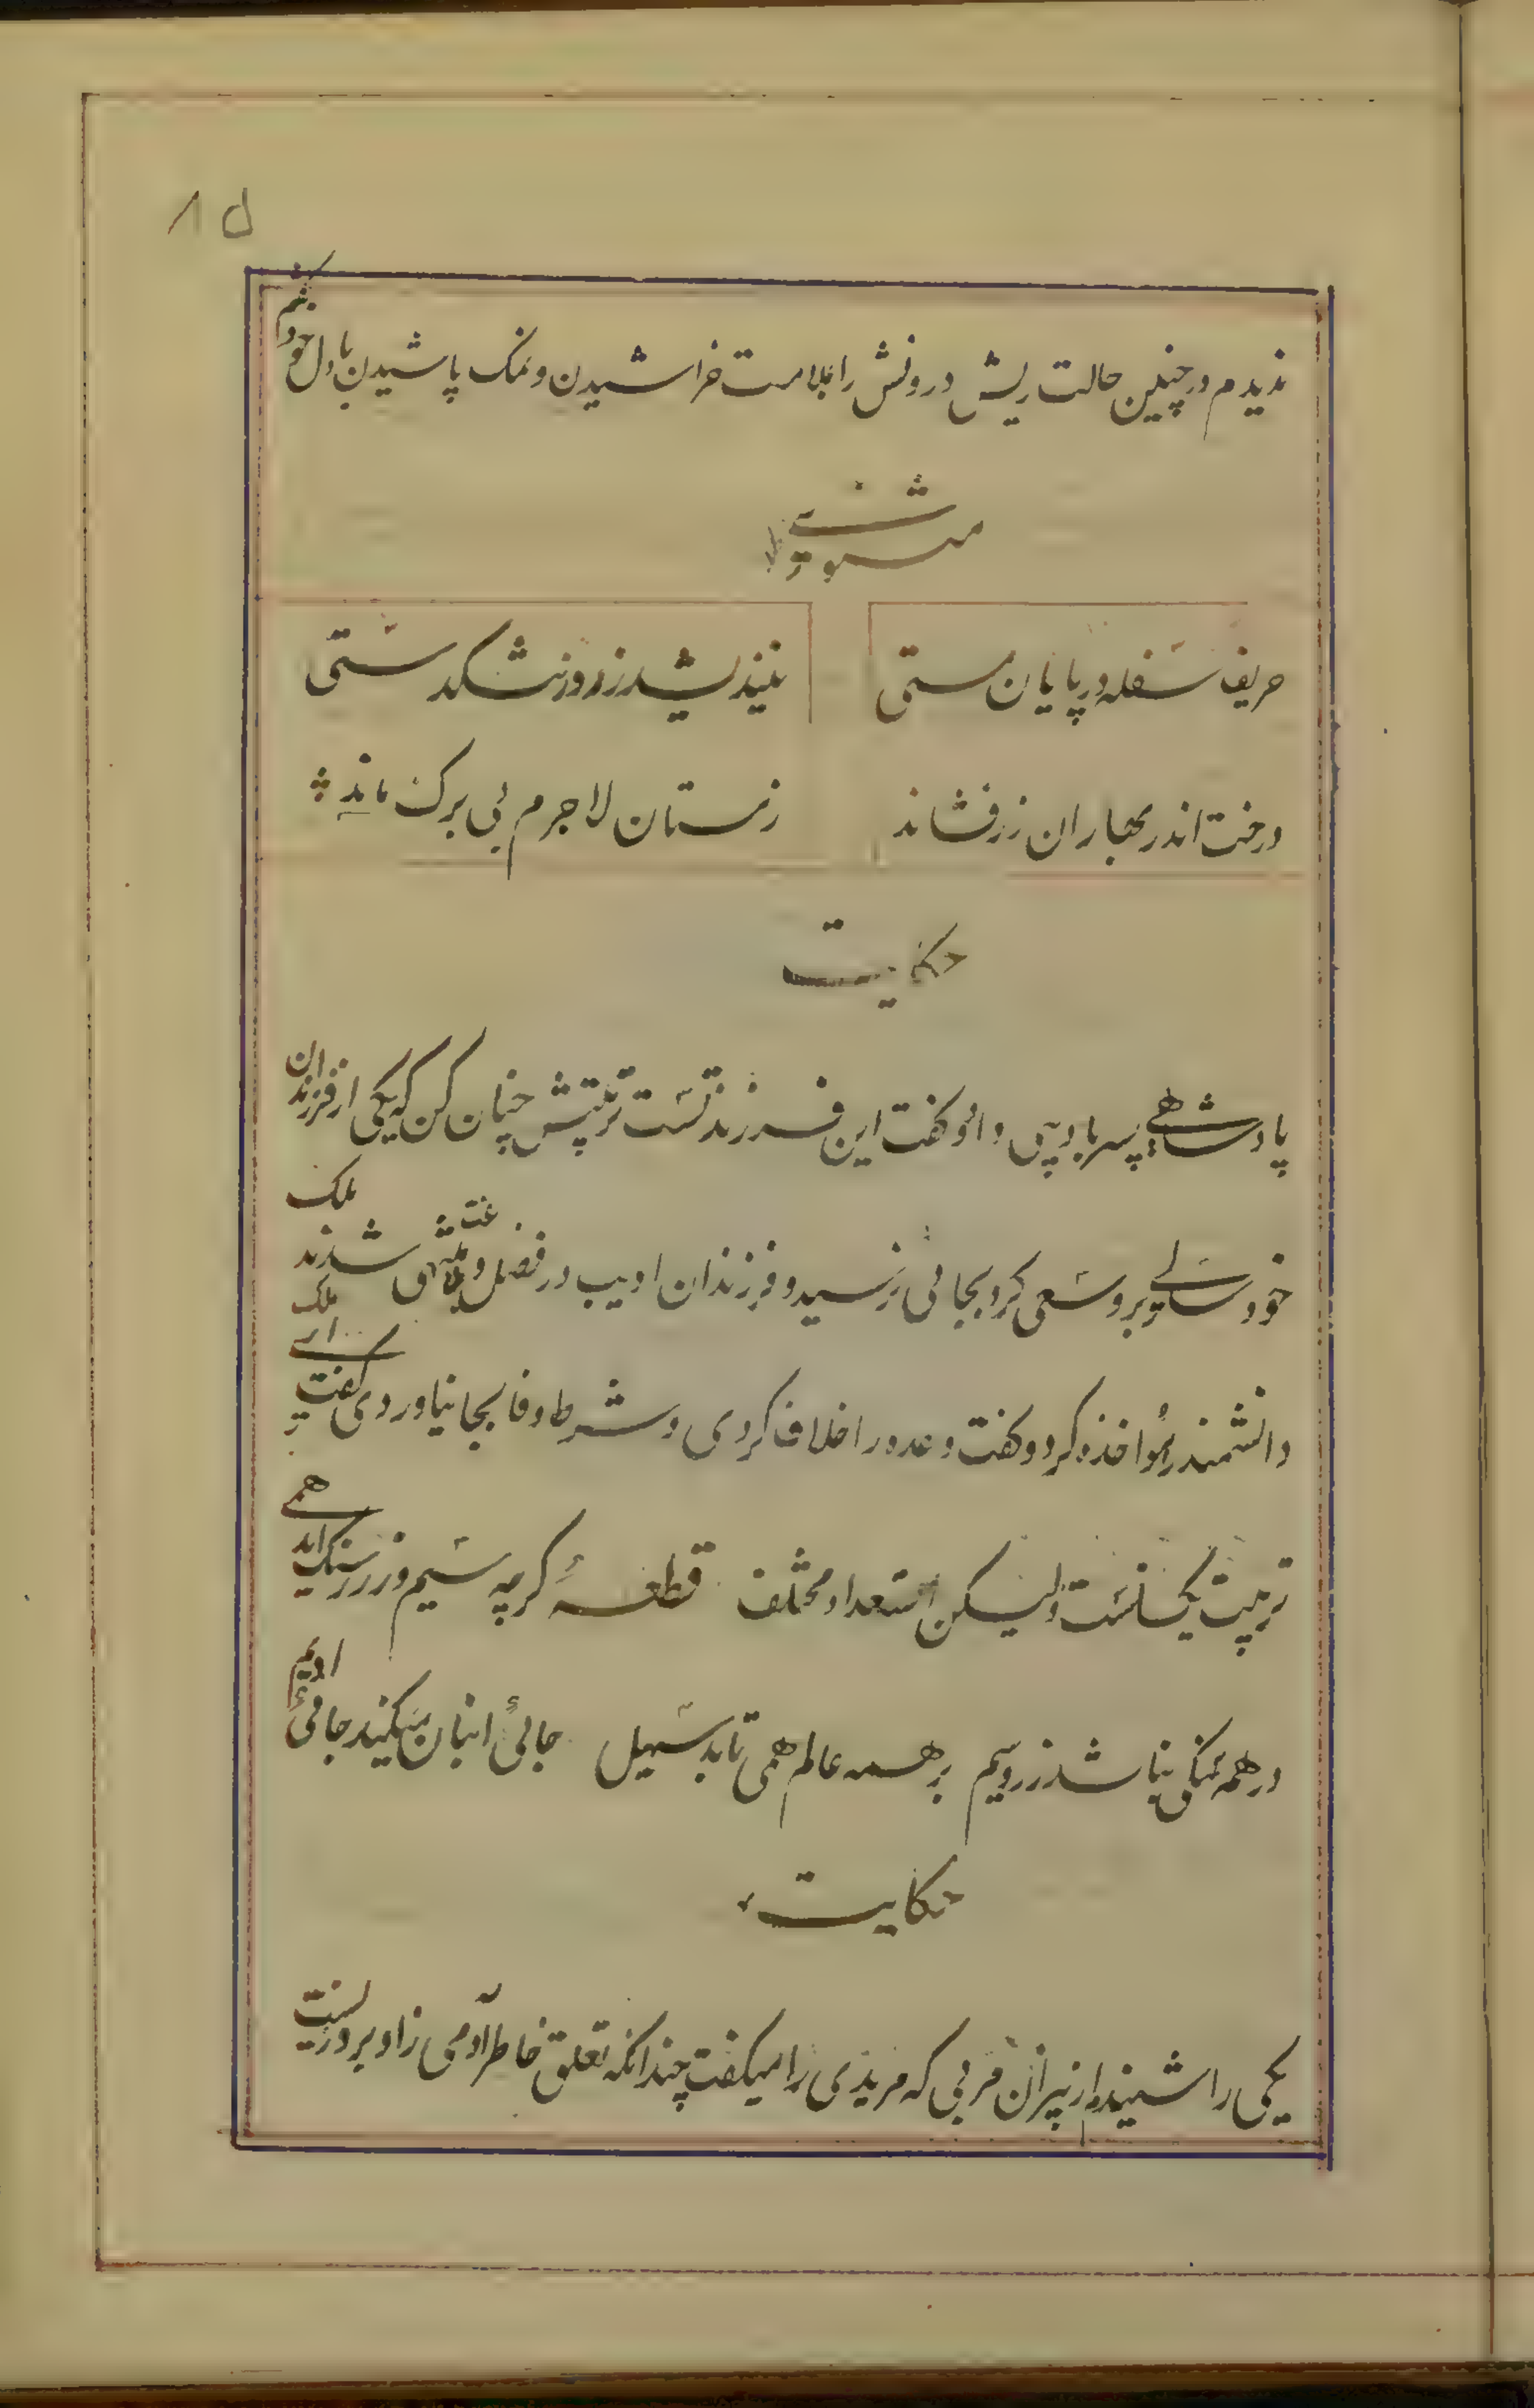 ۸۵
ندیدم در چنین حالت ریش درونش را بملامت خراشیدن و نمک پاشیدن با دل خود گفتم
مثنوی
حریف سفله در پایان مستی
نیندیشد ز روز تنکدستی
درخت اندر بهاران زر فشاند
زمستان لاجرم بی برک ماند
حکایت
پادشاهی پسر بادیبی داد و کفت این فرزند تست تربیتش چنان کن که یکی از فرزندان
خود سالی برو سعی کرد بجائی نرسید و فرزندان ادیب در فضل و بلاغت منتهی شدند ملک
دانشمند را مؤاخذه کرد و کفت وعده را خلاف کردی و شرط وفا بجا نیاوردی کفت ای ملک
تربیت یکسانست ولیکن استعداد مختلف قطعهٔ کرچه سیم و زر ز سنک اید همی
در همه سنکی نباشد زر و سیم بر همه عالم همی تابد سهیل جائی انبان میکند جائی ادیم
حکایت
یکی را شنیدم از پیران مربی که مریدی را میکفت چندانکه تعلق خاطر آدمی زاد بروزیست